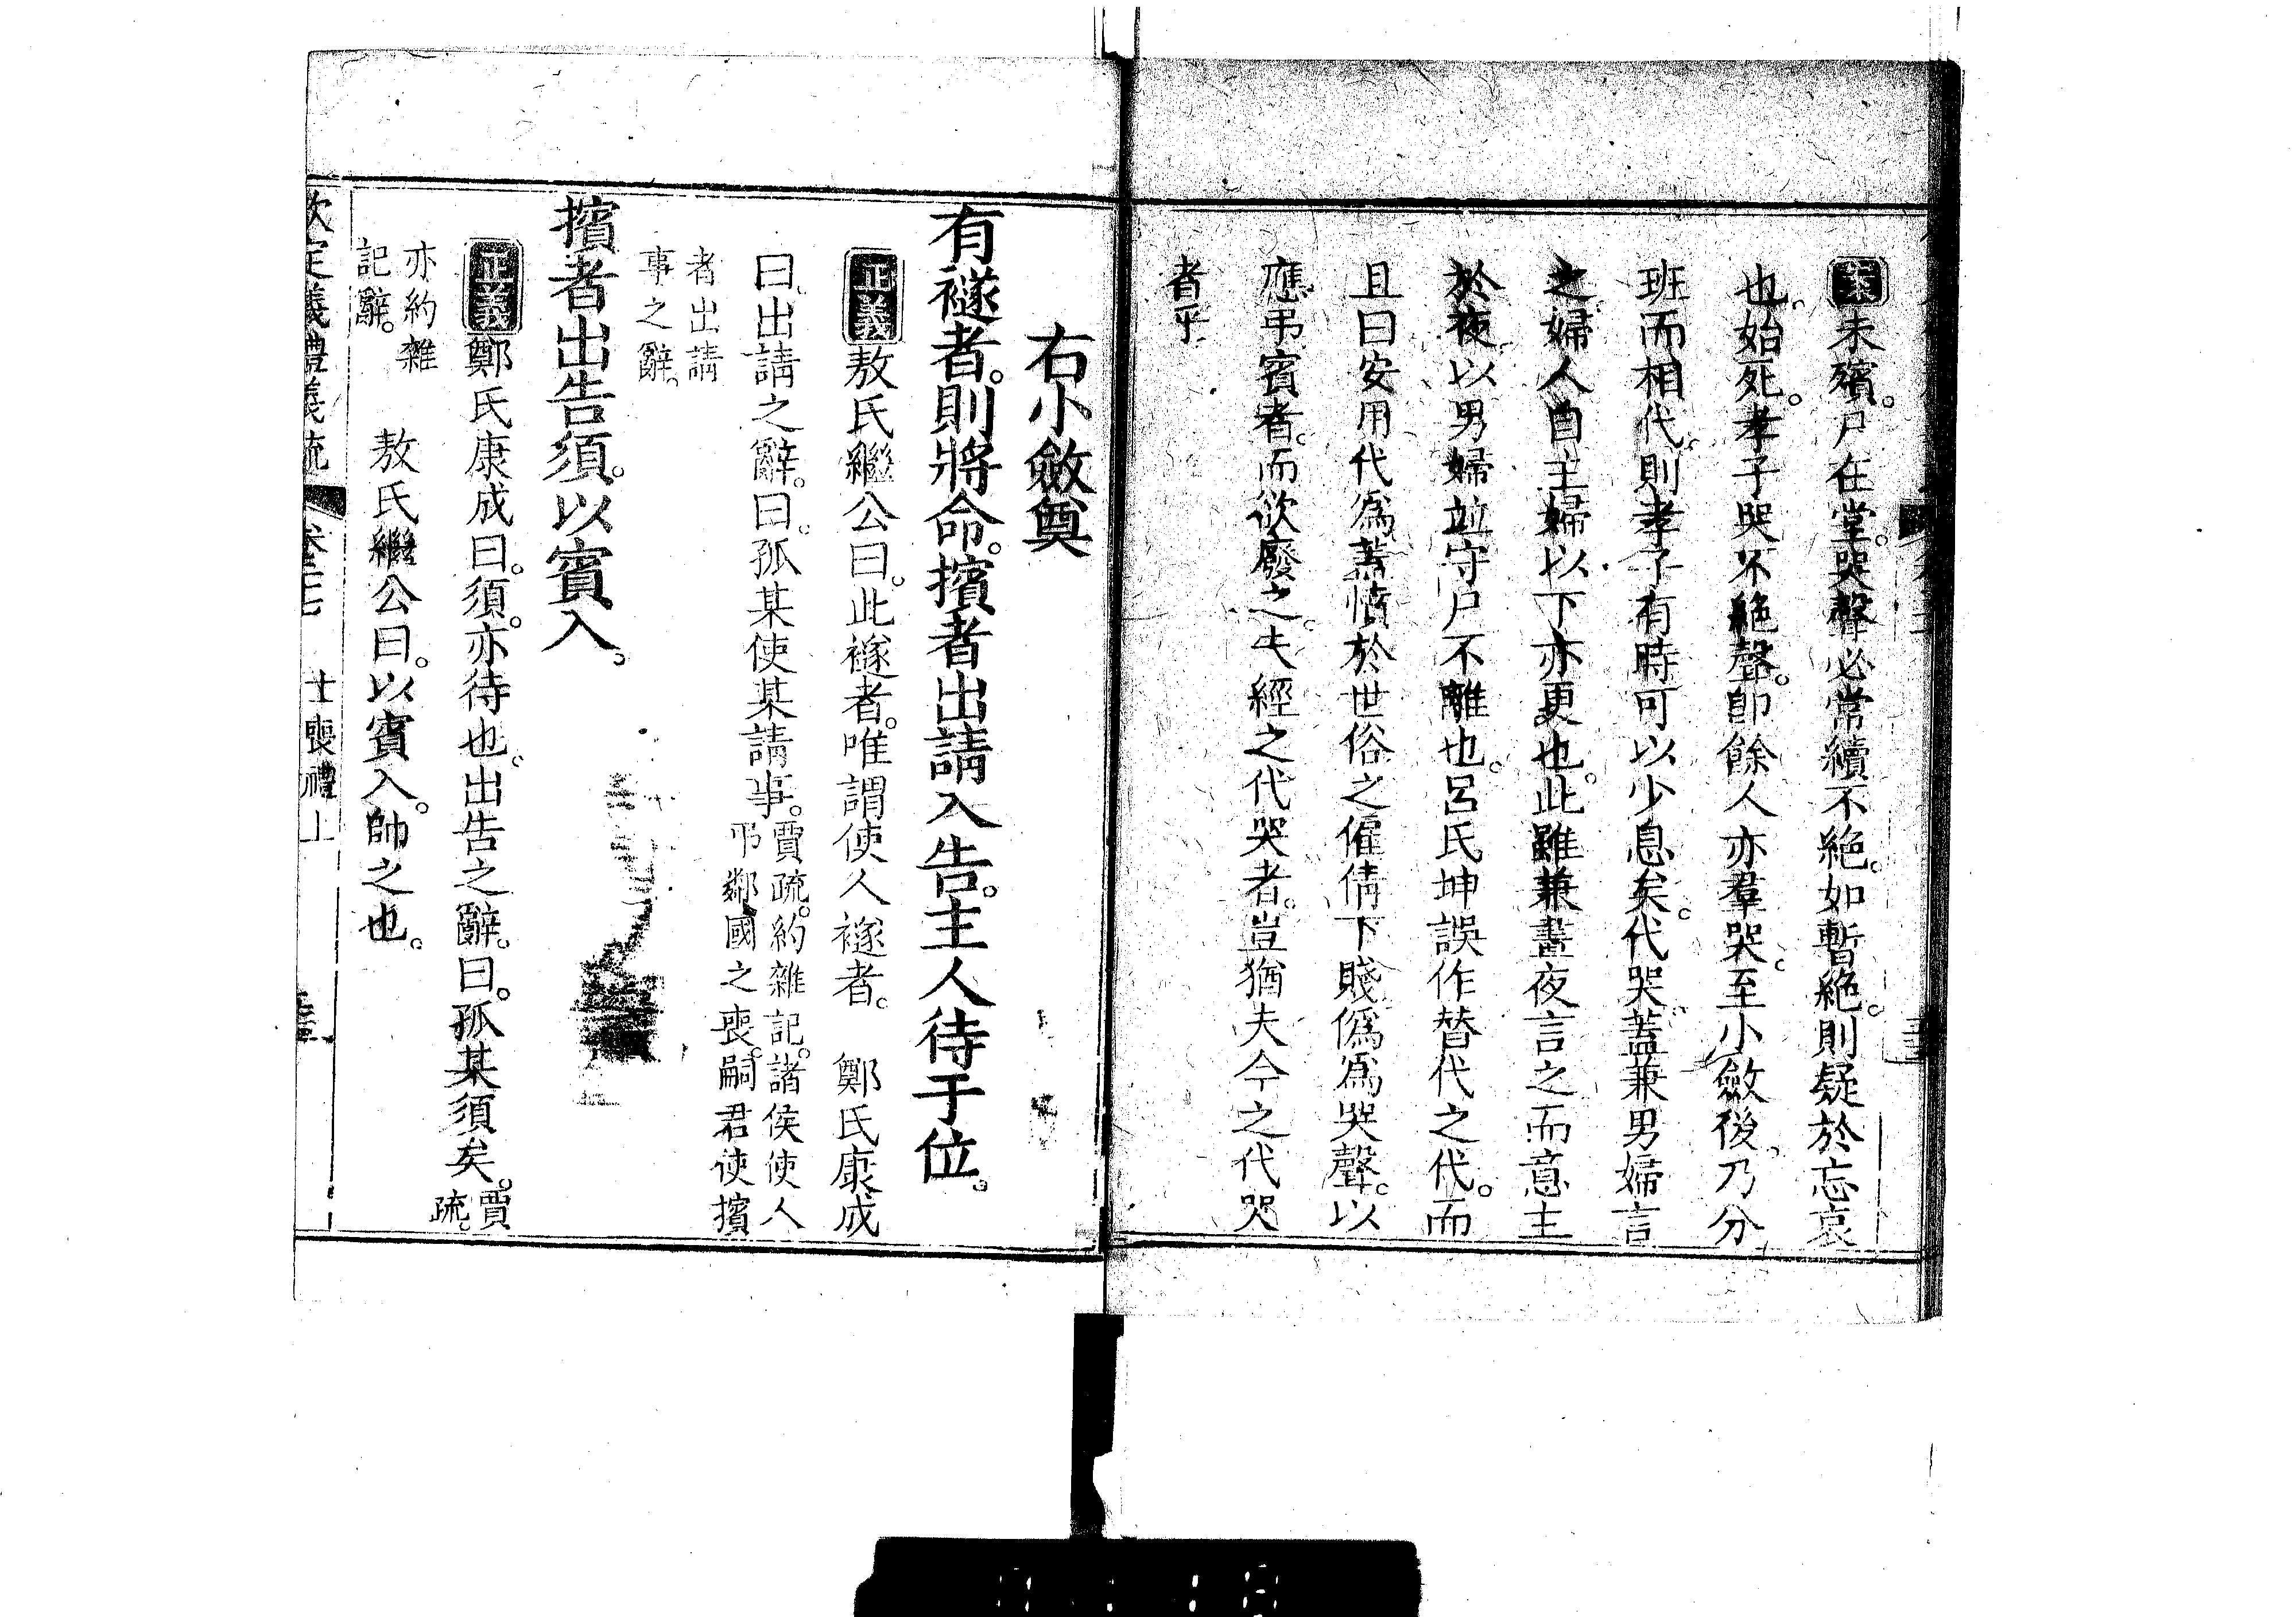 案未殯。尸在堂。哭聲必常續不絕。如暫絕。則疑於忘哀
也。始死。孝子哭不絕聲。卽餘人亦羣哭。至小斂後。乃分
班而相代。則孝子有時可以少息矣。代哭。蓋兼男婦言
之。婦人自主婦以下亦更也。此雖兼晝夜言之而意主
於夜。以男婦竝守尸不離也。呂氏坤誤作替代之代。而
且曰安用代爲蓋憤於世俗之僱倩下賤僞爲哭聲。以
應弔賓者。而欲廢之。夫經之代哭者。豈猶夫今之代哭
者乎
右小斂奠
有襚者。則將命。擯者出請入告。主人待于位。
正義敖氏繼公曰。此襚者。唯謂使人襚者。 鄭氏康成
曰。出請之辭。曰。孤某使某請事。賈疏。約雜記。諸侯使人
弔鄰國之喪。嗣君使擯
者出請
事之辭。
擯者出告須。以賓入。
正義鄭氏康成曰。須。亦待也。出告之辭。曰。孤某須矣。賈
疏。
亦約雜
記辭。 敖氏繼公曰。以賓入。帥之也。
欽定儀禮義疏 卷二十七 士喪禮上